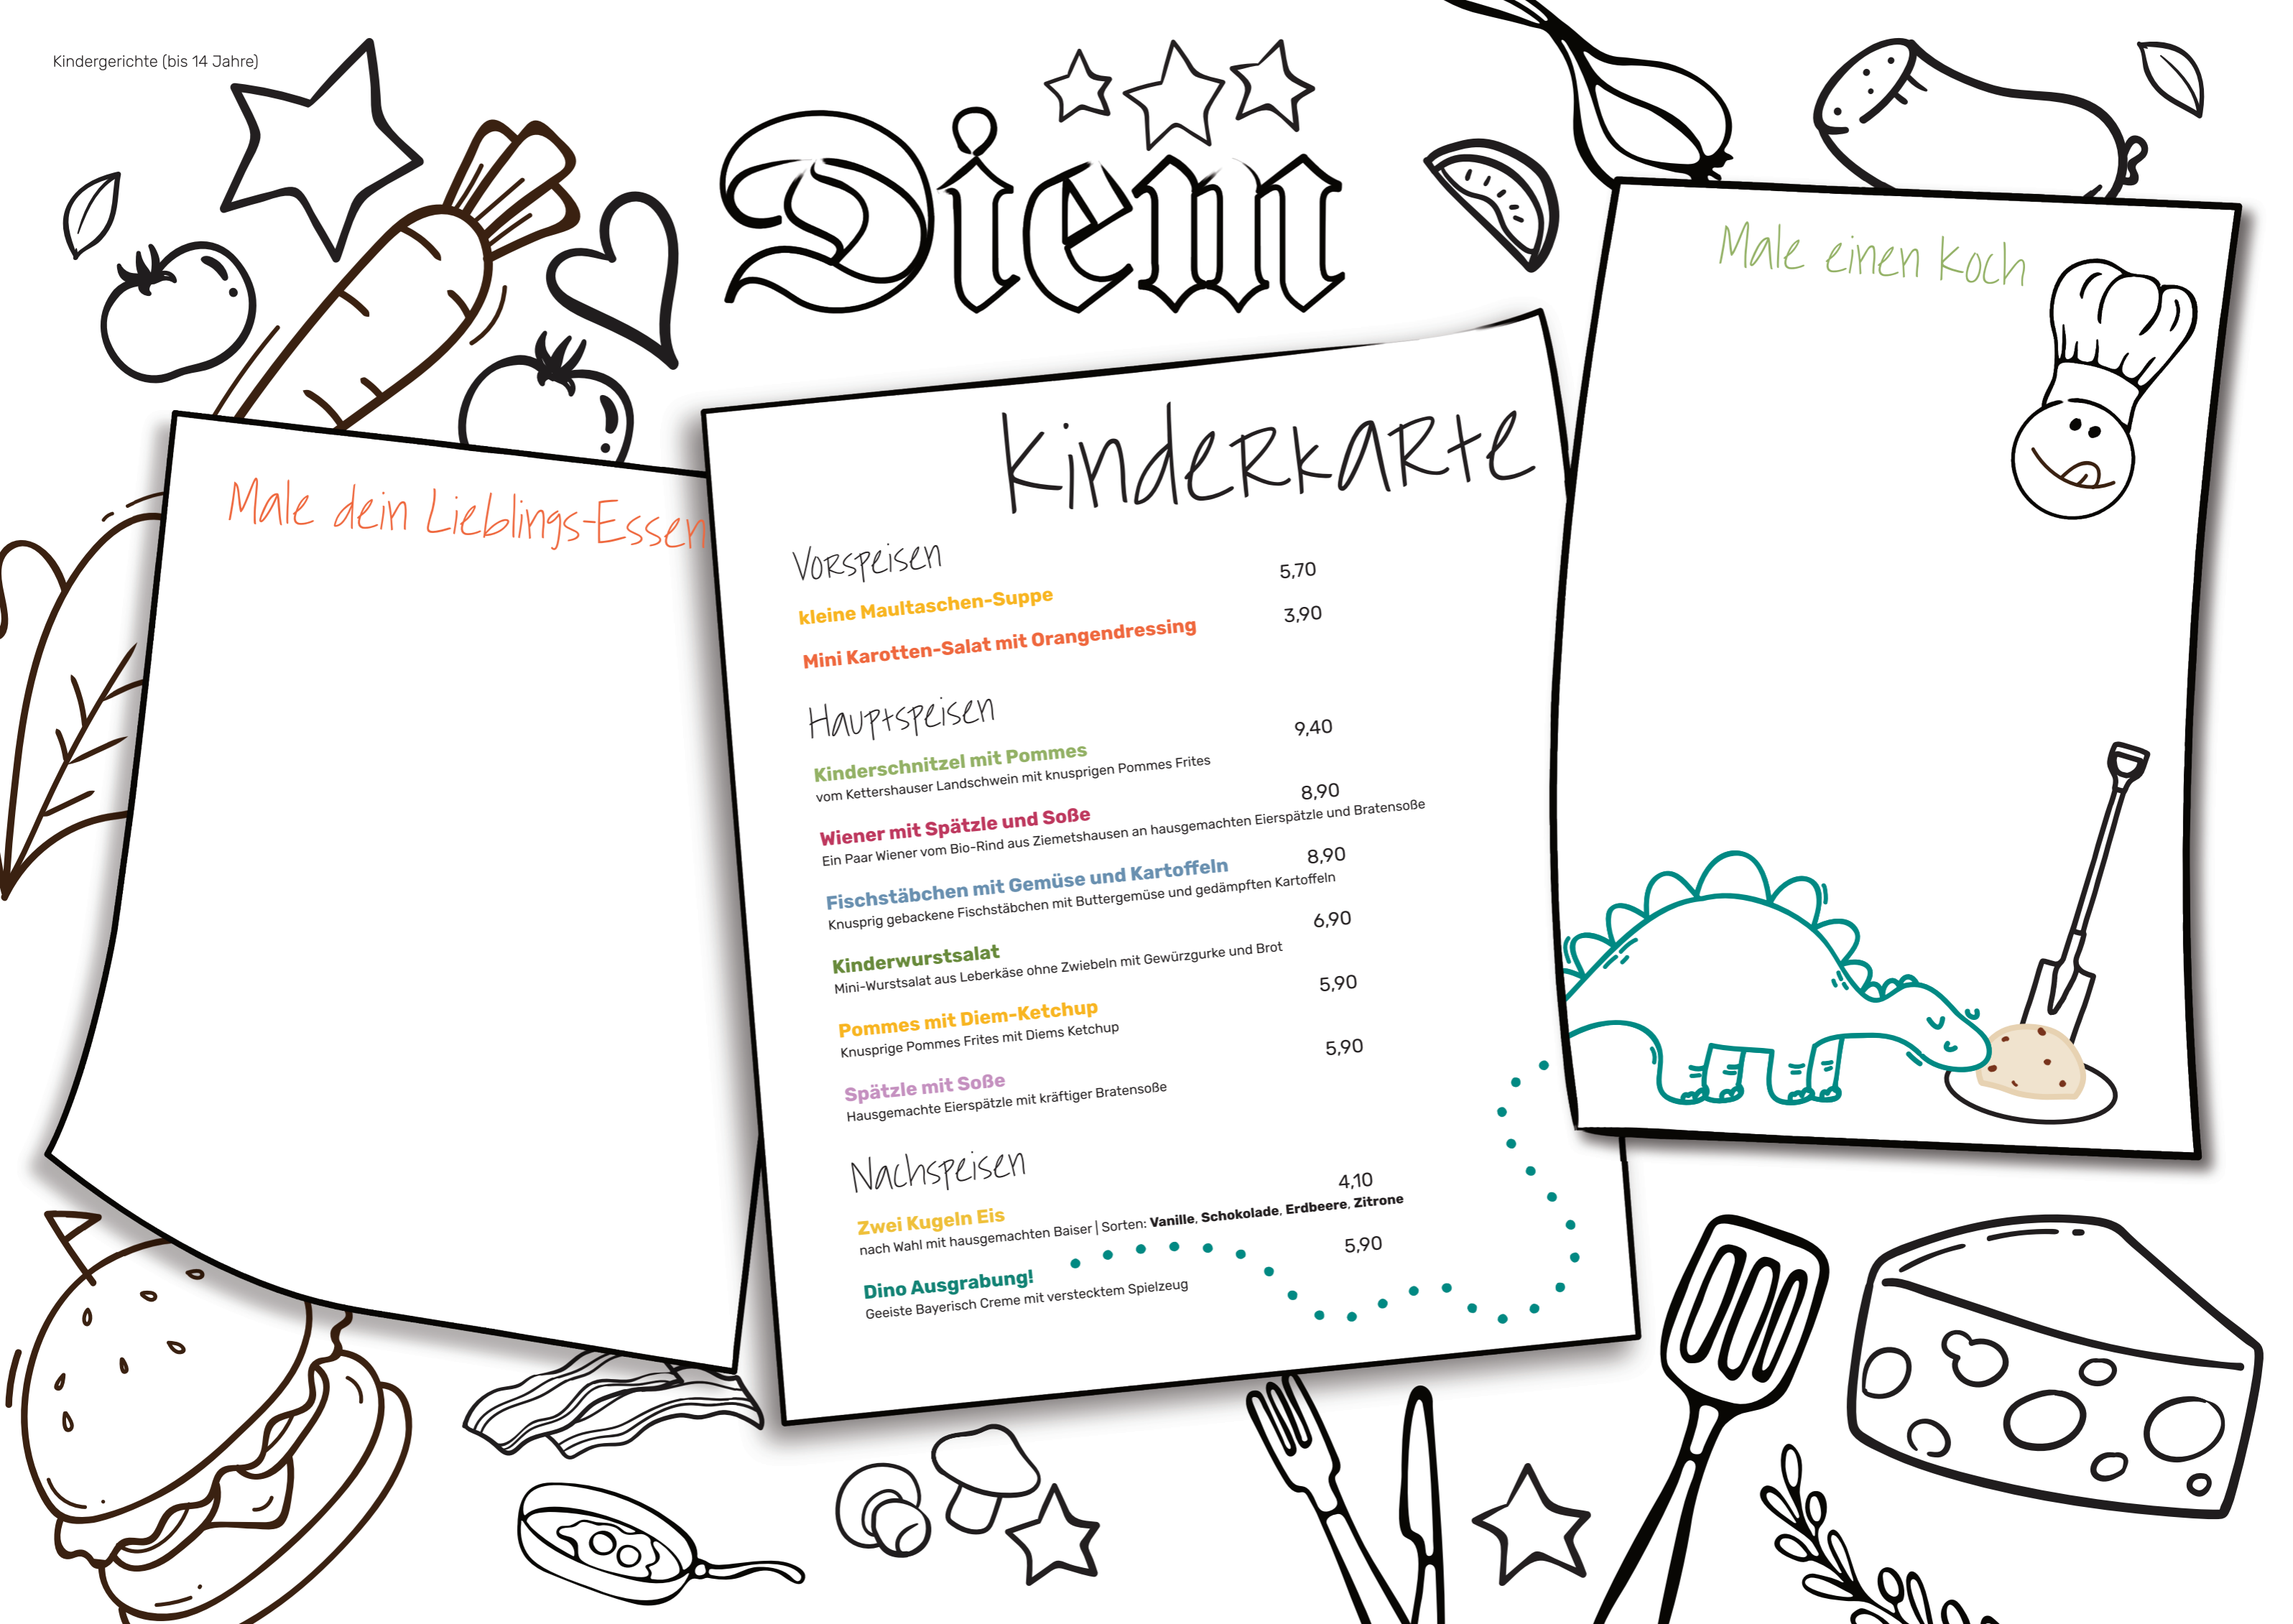 Kindergerichte (bis 14 Jahre)
Diem
Male einen Koch
Male dein Lieblings-Essen
Kinderkarte
Vorspeisen
kleine Maultaschen-Suppe 5,70
Mini Karotten-Salat mit Orangendressing 3,90
Hauptspeisen
Kinderschnitzel mit Pommes 9,40
vom Kettershauser Landschwein mit knusprigen Pommes Frites
Wiener mit Spätzle und Soße 8,90
Ein Paar Wiener vom Bio-Rind aus Ziemetshausen an hausgemachten Eierspätzle und Bratensoße
Fischstäbchen mit Gemüse und Kartoffeln 8,90
Knusprig gebackene Fischstäbchen mit Buttergemüse und gedämpften Kartoffeln
Kinderwurstsalat 6,90
Mini-Wurstsalat aus Leberkäse ohne Zwiebeln mit Gewürzgurke und Brot
Pommes mit Diem-Ketchup 5,90
Knusprige Pommes Frites mit Diems Ketchup
Spätzle mit Soße 5,90
Hausgemachte Eierspätzle mit kräftiger Bratensoße
Nachspeisen
Zwei Kugeln Eis 4,10
nach Wahl mit hausgemachten Baiser | Sorten: Vanille, Schokolade, Erdbeere, Zitrone
Dino Ausgrabung! 5,90
Geeiste Bayerisch Creme mit verstecktem Spielzeug